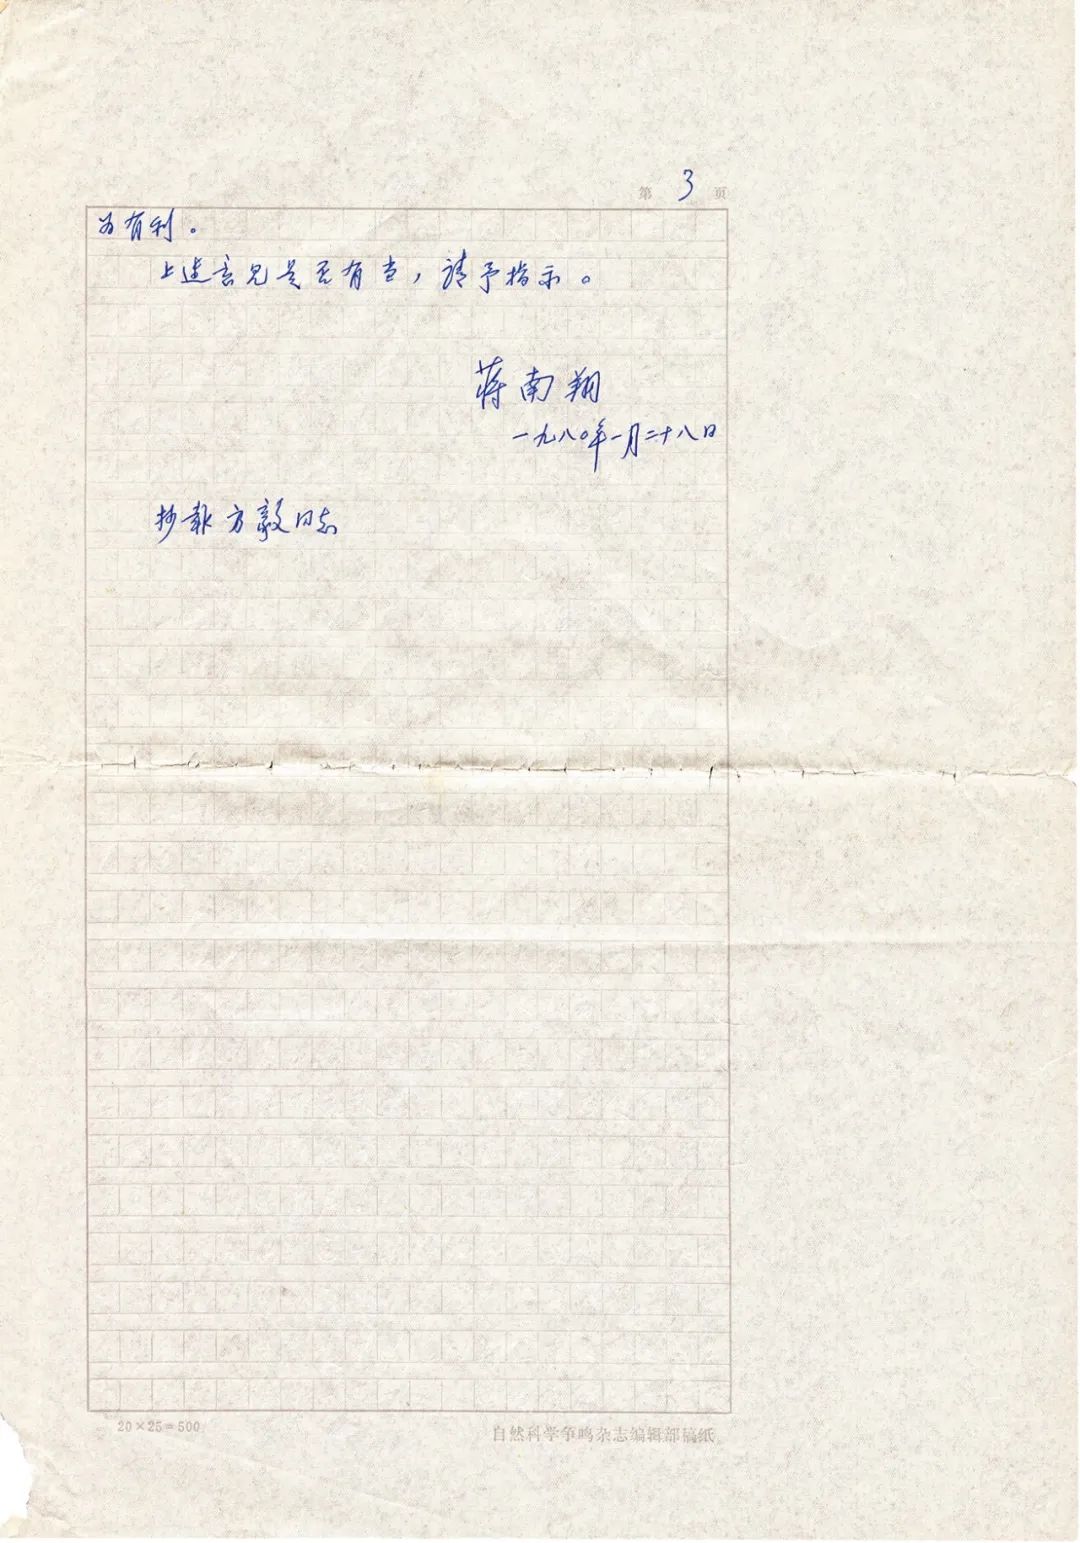 第 3 页
为有利。
上述意见是否有当，請予指示。
蒋南翔
一九八〇年一月二十八日
抄報方毅同志
20×25=500
自然科学争鸣杂志编辑部稿纸